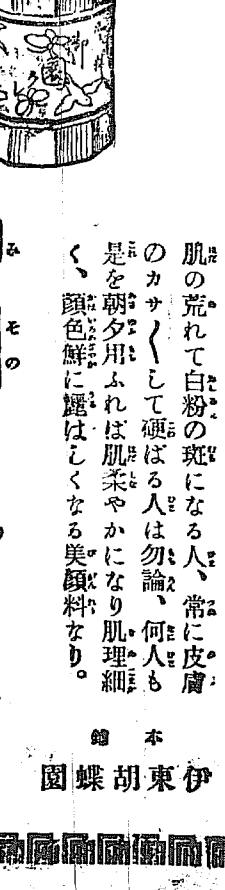 肌の荒れて白粉の斑になる人、常に皮膚
のカサ〱して硬ばる人は勿論、何人も
是を朝夕用ふれば肌柔やかになり肌理細
く、顔色鮮に麗はしくなる美顔料なり。
本舗
伊東胡蝶園
みその